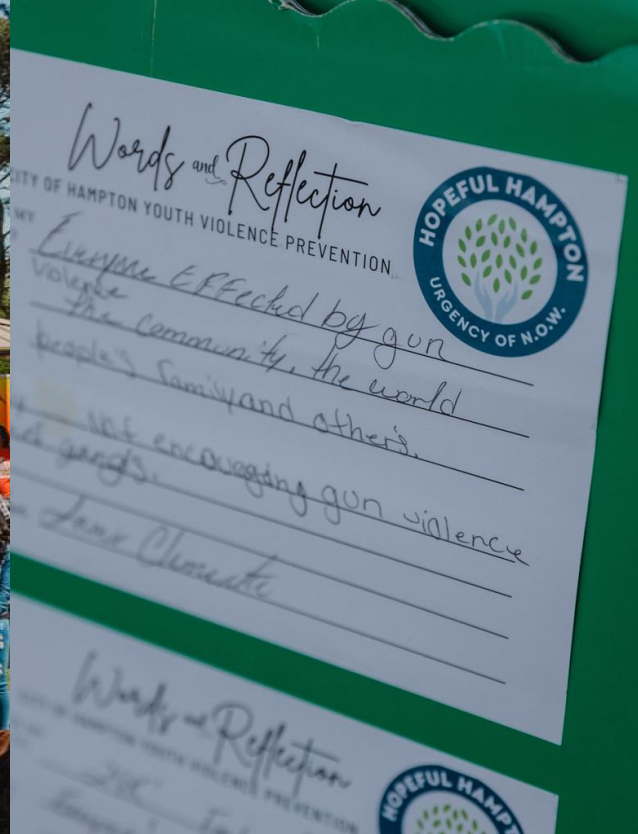 Words and Reflection
CITY OF HAMPTON YOUTH VIOLENCE PREVENTION
HOPEFUL HAMPTON
URGENCY OF N.O.W.
MY
Everyone EFFected by gun
violence
the community, the world
people's family and others.
Not encouraging gun violence
gangs.
Clemente
Words and Reflection
CITY OF HAMPTON YOUTH VIOLENCE PREVENTION
HOPEFUL HAMPT